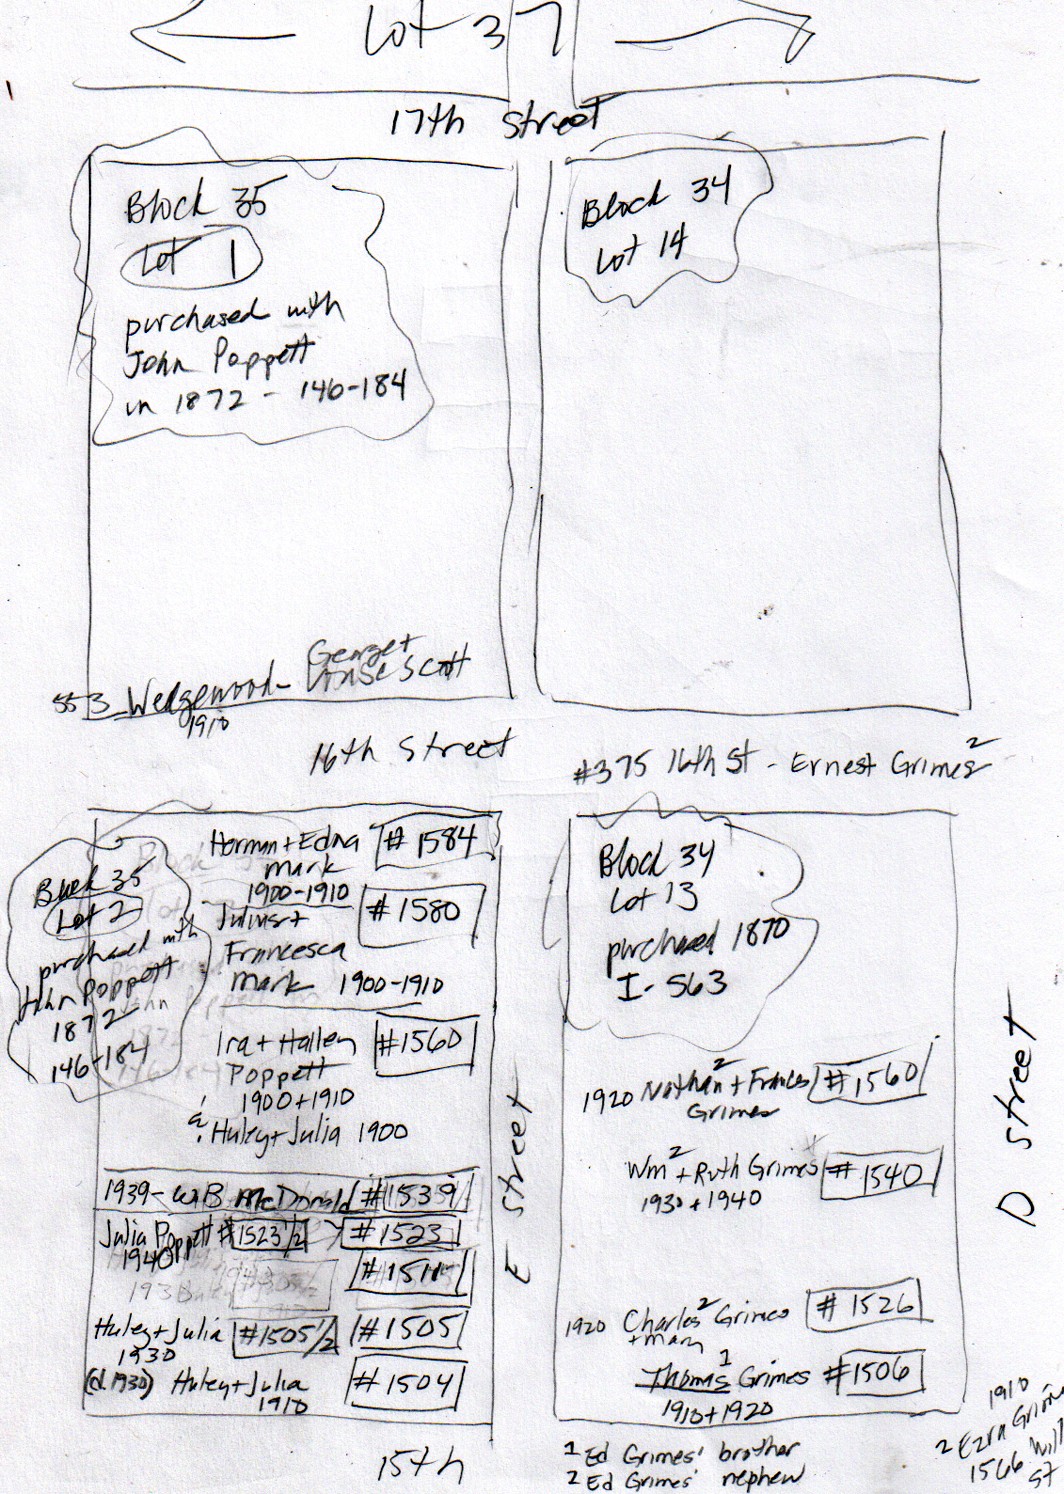 Lot 37
17th Street
Block 35
Lot 1
purchased with
John Poppett
in 1872 - 146-184
Block 34
Lot 14
George +
Scott
553 Wedgewood-
1910
16th Street
#375 16th St - Ernest Grimes 2
Block 35
Lot 2
purchased with
John Poppett
1872
146-184
Herman + Edna
Mark
1900-1910
# 1584
Julius +
Francesca
Mark 1900-1910
# 1580
Ira + Hallen
Poppett
1900 + 1910
& Huley + Julia 1900
#1560
1939- WB McDonald #1539
Julia Poppett #1523 1/2 #1523
1940
#1511
Huley + Julia #1505 1/2 #1505
1930
(d. 1930) Huley + Julia #1504
1910
15th
E Street
Block 34
Lot 13
purchased 1870
I-563
1920 Nathan 2 + Frances #1560
Grimes
Wm 2 + Ruth Grimes #1540
1930 + 1940
1920 Charles 2 Grimes # 1526
+ Mary
Thomas 1 Grimes #1506
1910 + 1920
D Street
1 Ed Grimes' brother
2 Ed Grimes' nephew
1910
2 Ezra Grimes
1566 Will
St